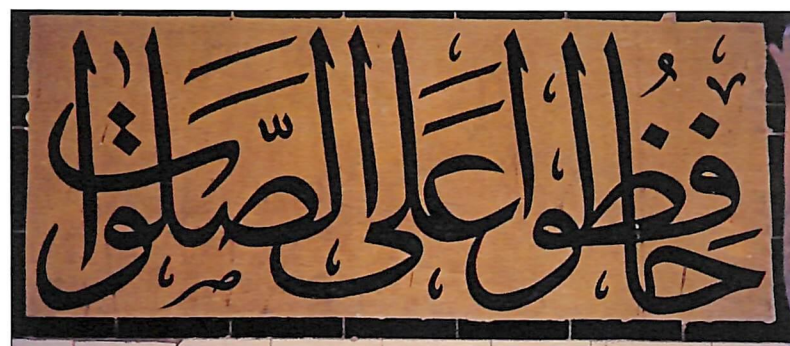 حَافِظُوا عَلَى الصَّلَوَات